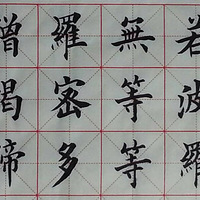 若波羅
無等等
羅蜜多
僧揭諦